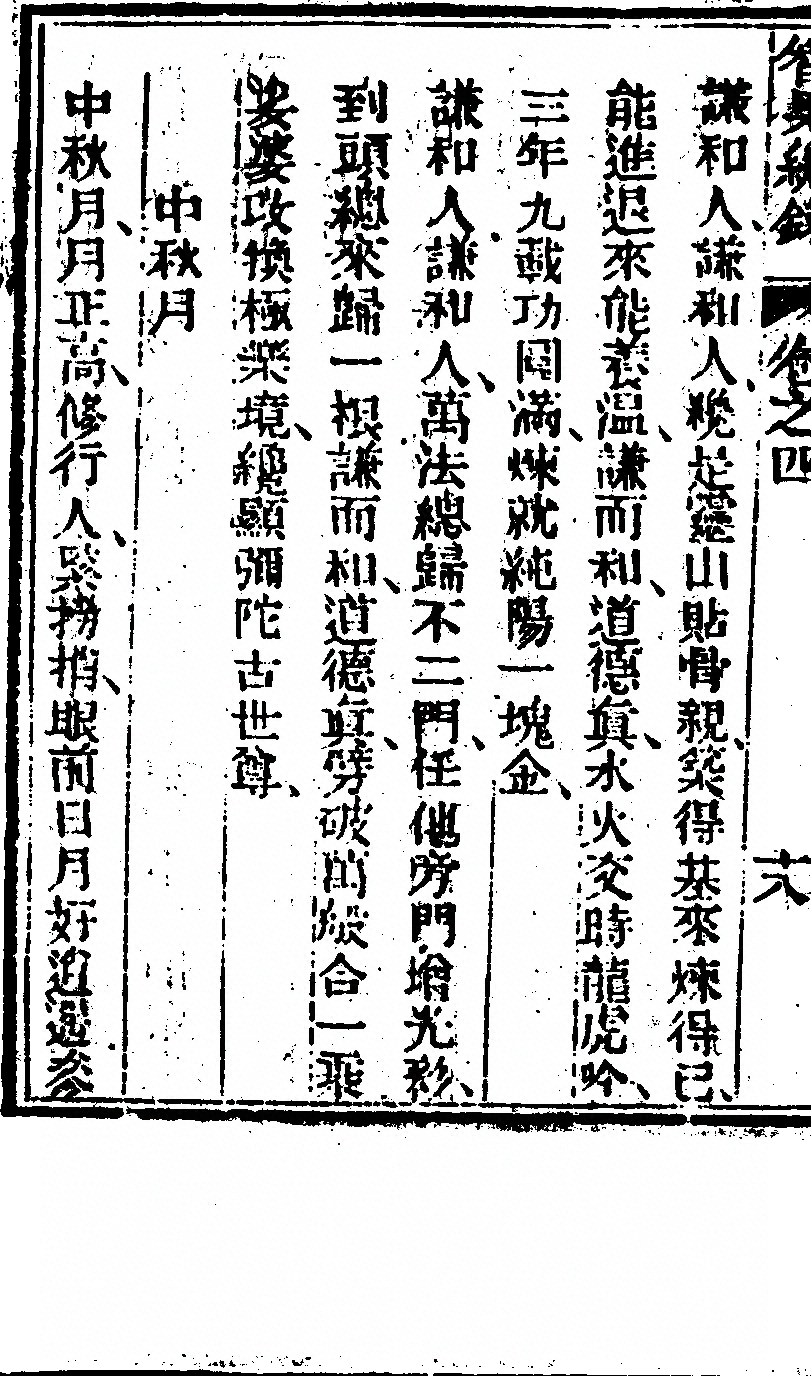 卷之四
十八
謙和人謙和人纔是靈山貼骨親築得基來煉得已
能進退來能養溫謙而和道德眞水火交時龍虎吟
三年九載功圓滿煉就純陽一塊金
謙和人謙和人萬法總歸不二門任他旁門增光彩
到頭總來歸一根謙而和道德眞劈破萬殺合一乘
娑婆改換極樂境纔顯彌陀古世尊
中秋月
中秋月月正高修行人緊撈捎眼前日月好逍遙